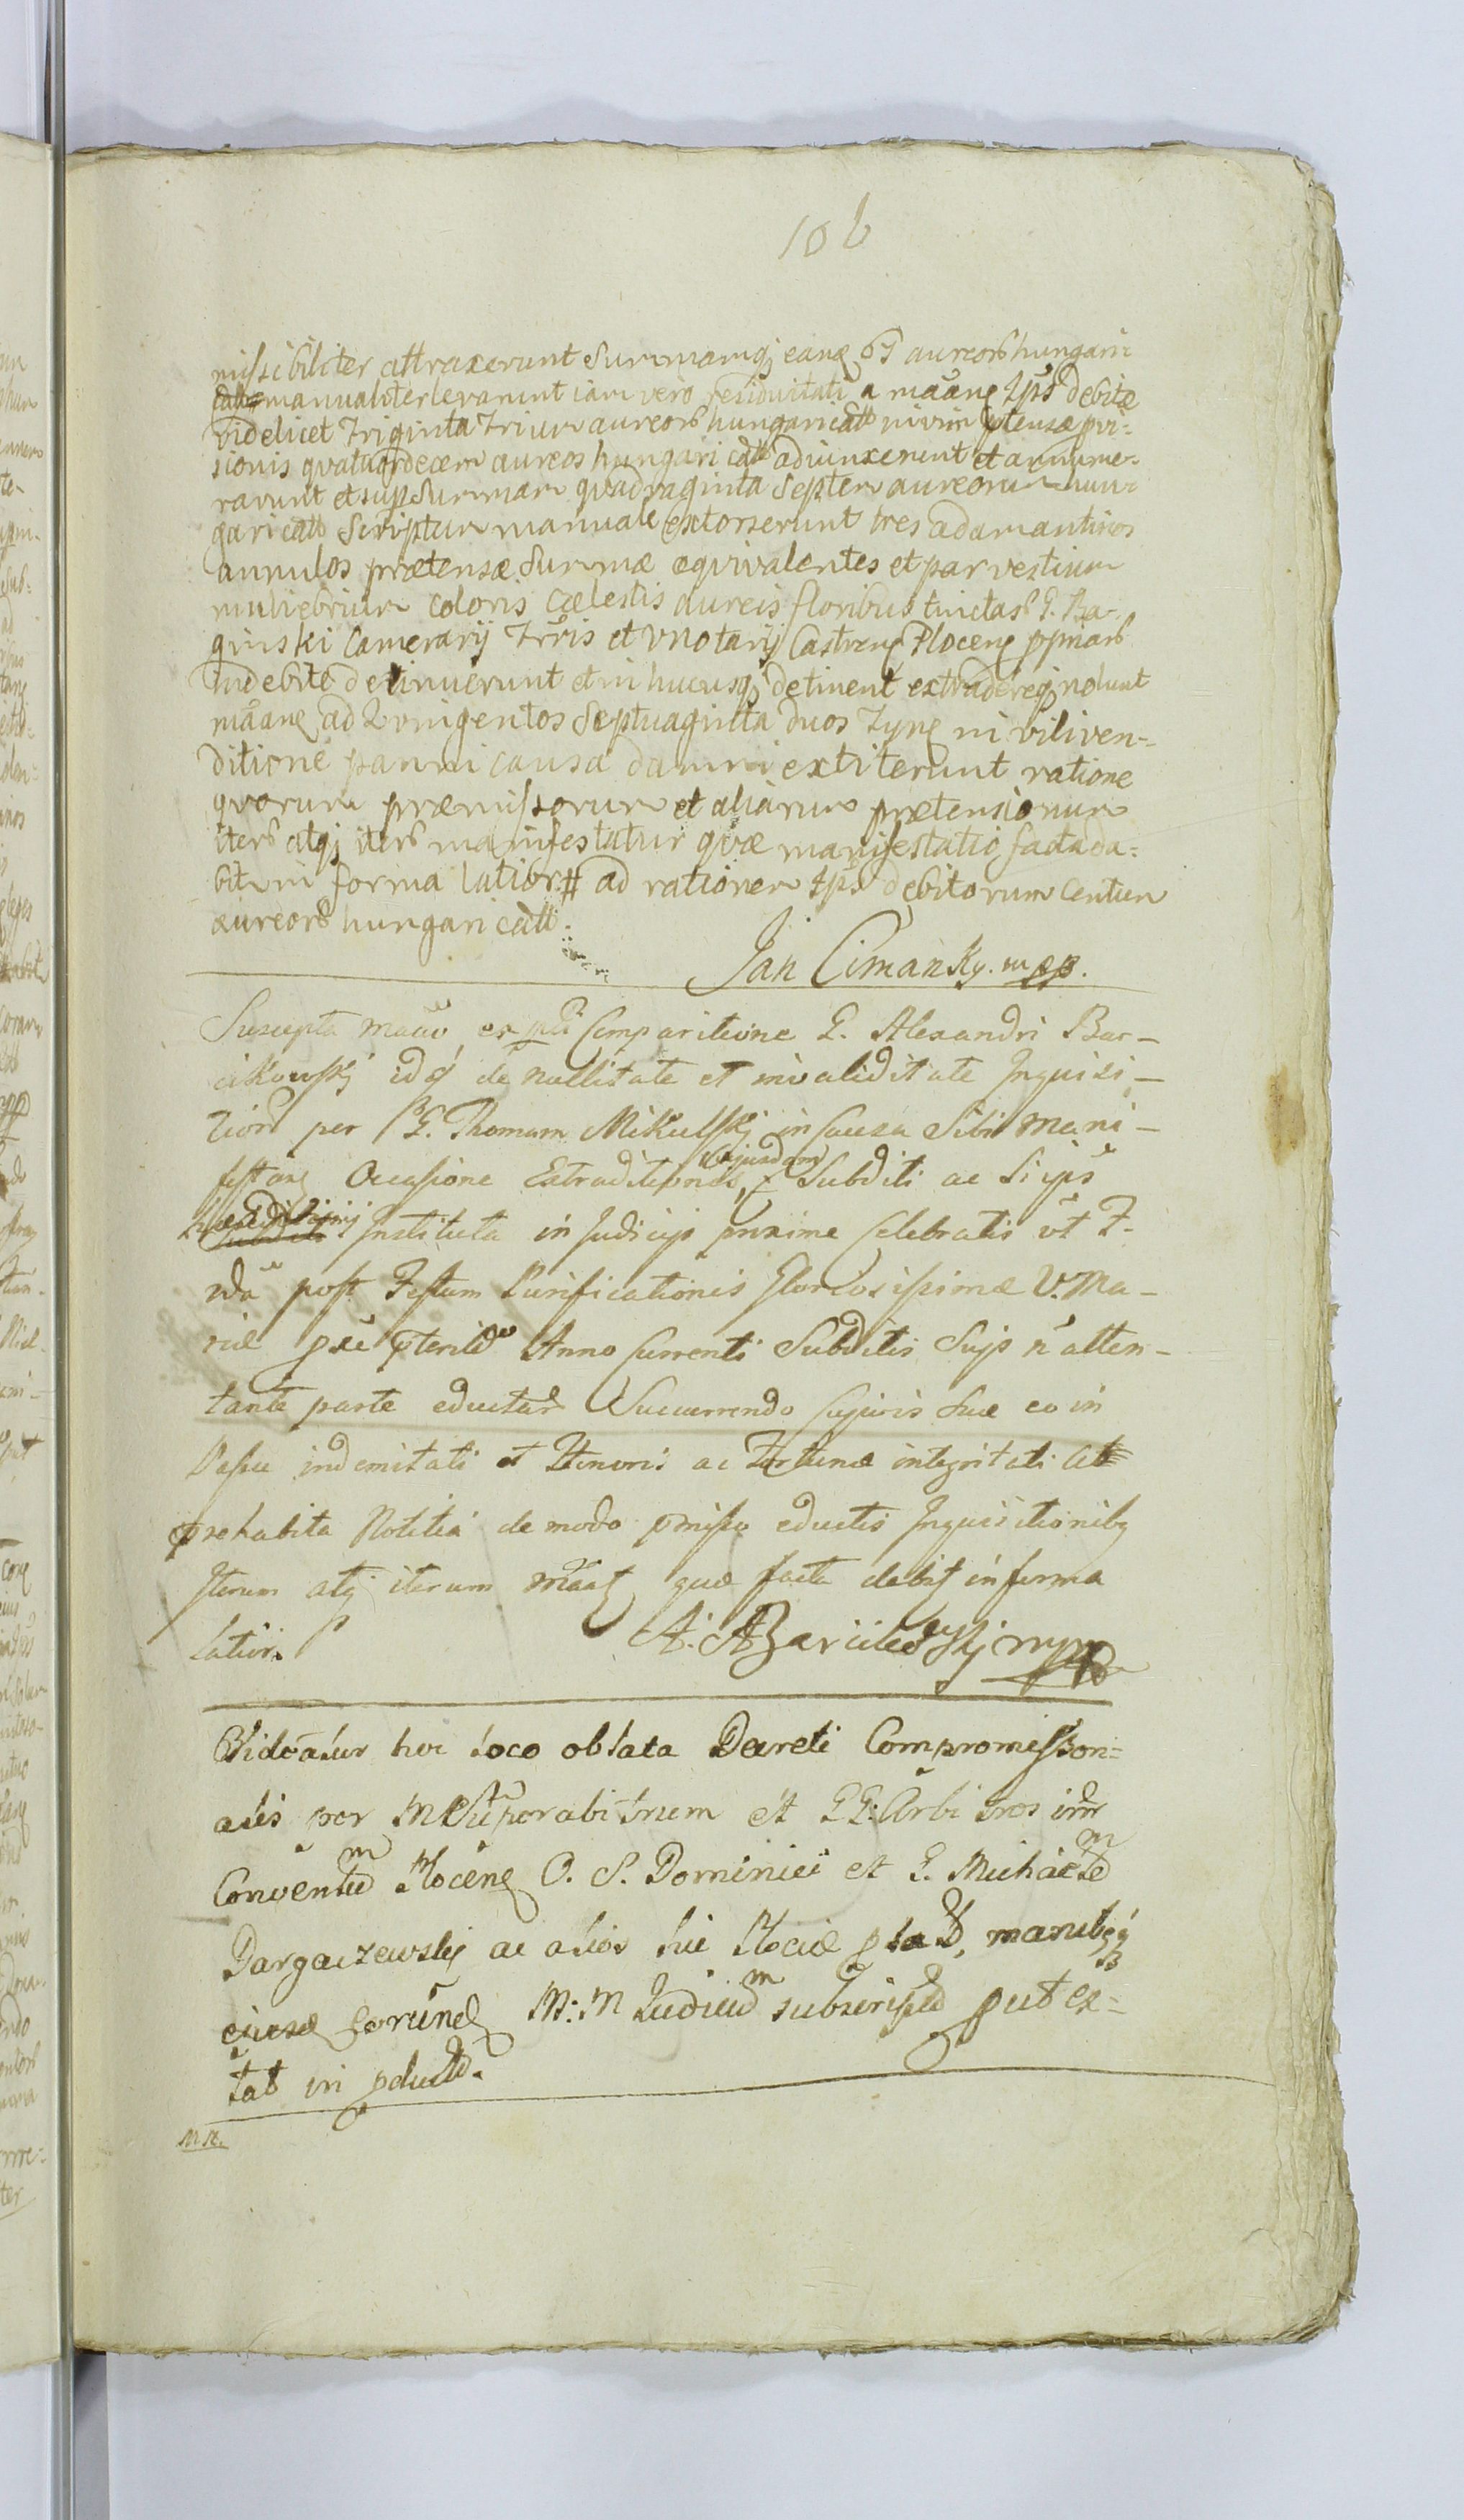 106
missibiliter attraxerunt Summamq; eanq 67 aureor hungari
manualiter levarunt iam vero residuitati a maãnq Ips debitæ
videlicet triginta trium aureor hungaricall nivim ptensæ pvi=
sionis qvatuordecem aureos hungaricall adiunxerunt et annume-
rarunt et sup Summam qvadraginta Septem aureorum hun-
garicall Scriptum manuale extorserunt tres adamantinos
annulos prætensæ Summæ æqvivalentes et par vestium
muliebrium coloris cælestis aureis floribus tinctas G. Ra-
ginski Camerarij Trris et VNotarij Castrenq Plocenq ppmar
indebite detinuerunt et in hucusq; detinent extradereq; nolunt
mãanq ad Qvingentos Septuaginta duos tynq in vili ven=
ditione panni causa damni extiterunt ratione
qvorum præmissorum et aliarum prætensionum
iter atq; iter manifestatur qvæ manifestatio facta da=
bit in forma latior # ad rationem Ips debitorum centum
aureor hungaricall.
Jan Cimansky. mpp.
Suscepta maão ex pti Comparitione G. Alexandri Bar-
cikowskj idq de nullitate et invaliditate Inquisi-
tion per G. Thomam Mikulskj in Causa Sibi Mani-
festanq Occasione Extraditionis, cujusdam Subditi ac Si ips
hæreditarij Subditi Instituta in Judicijs proxime Celebratis ut F-
rda post Festum Purificationis Gloriosissimæ V. Ma-
riæ pxe pterito Anno Currenti Subditis Sujs n atten-
tante parte eductar Succurrendo Cujuvis Suæ eo in
Passu indemnitati et Honoris ac Fortunæ integritati
prehabita Notitia de modo pmisso eductis Inquisitionibq
Iterum atq; iterum mãatq quæ facta debit in forma
latiori.
A. Barcikowskj mpp
Videatur hoc loco oblata Decreti Compromisson=
alis per M Superarbitrum et GG: Arbitros intr
Conventum Plocenq O. S. Dominici et G. Michaelem
Dargaczewskj ac alios hic Plociæ plat, manibqq
ejusd eorundq M: M Judicum subscripto put ex=
tat in pducto.